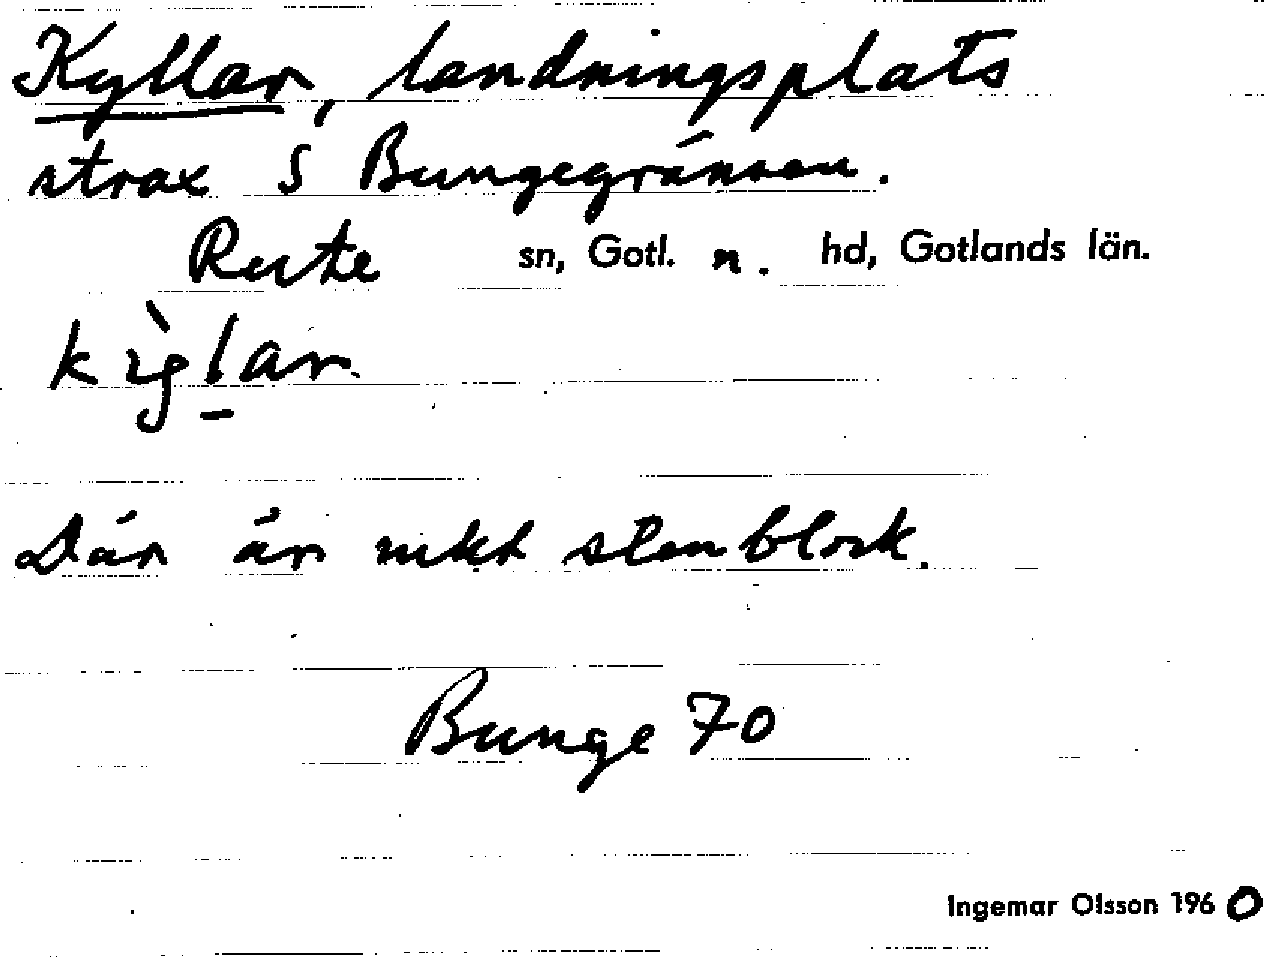 Kyllar, landningsplats
strax S Bungegränsen.
Rute sn, Gotl. n. hd, Gotlands län.
kìg̣lar
Där är mkt stenblock.
Bunge 70
Ingemar Olsson 1960